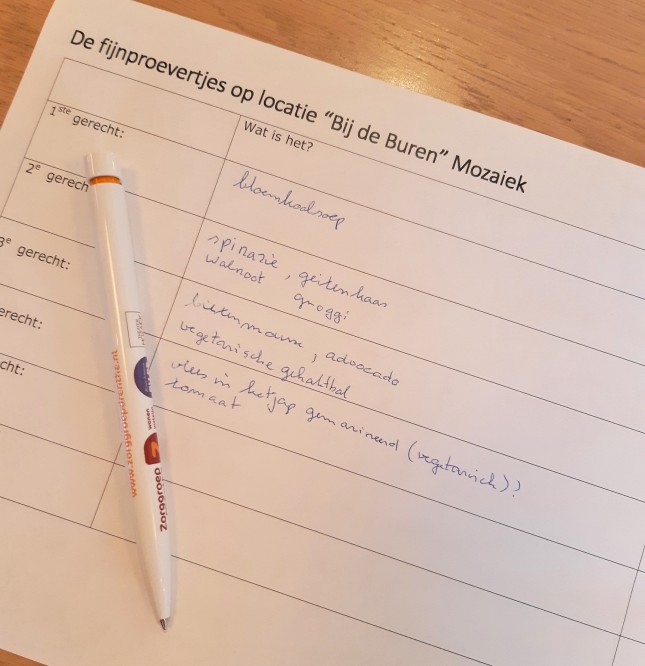 De fijnproevertjes op locatie “Bij de Buren” Mozaiek
Wat is het?
1ste gerecht:
bloemkoolsoep
2e gerech
spinazie, geitenkaas
walnoot gnoggi
3e gerecht:
advocado
vegetarische gehaktbal
erecht:
vlees in ketjap gemarineerd (vegetarisch)?
tomaat
cht:
www.zorggroepdrenthe.nl
Zorggroep